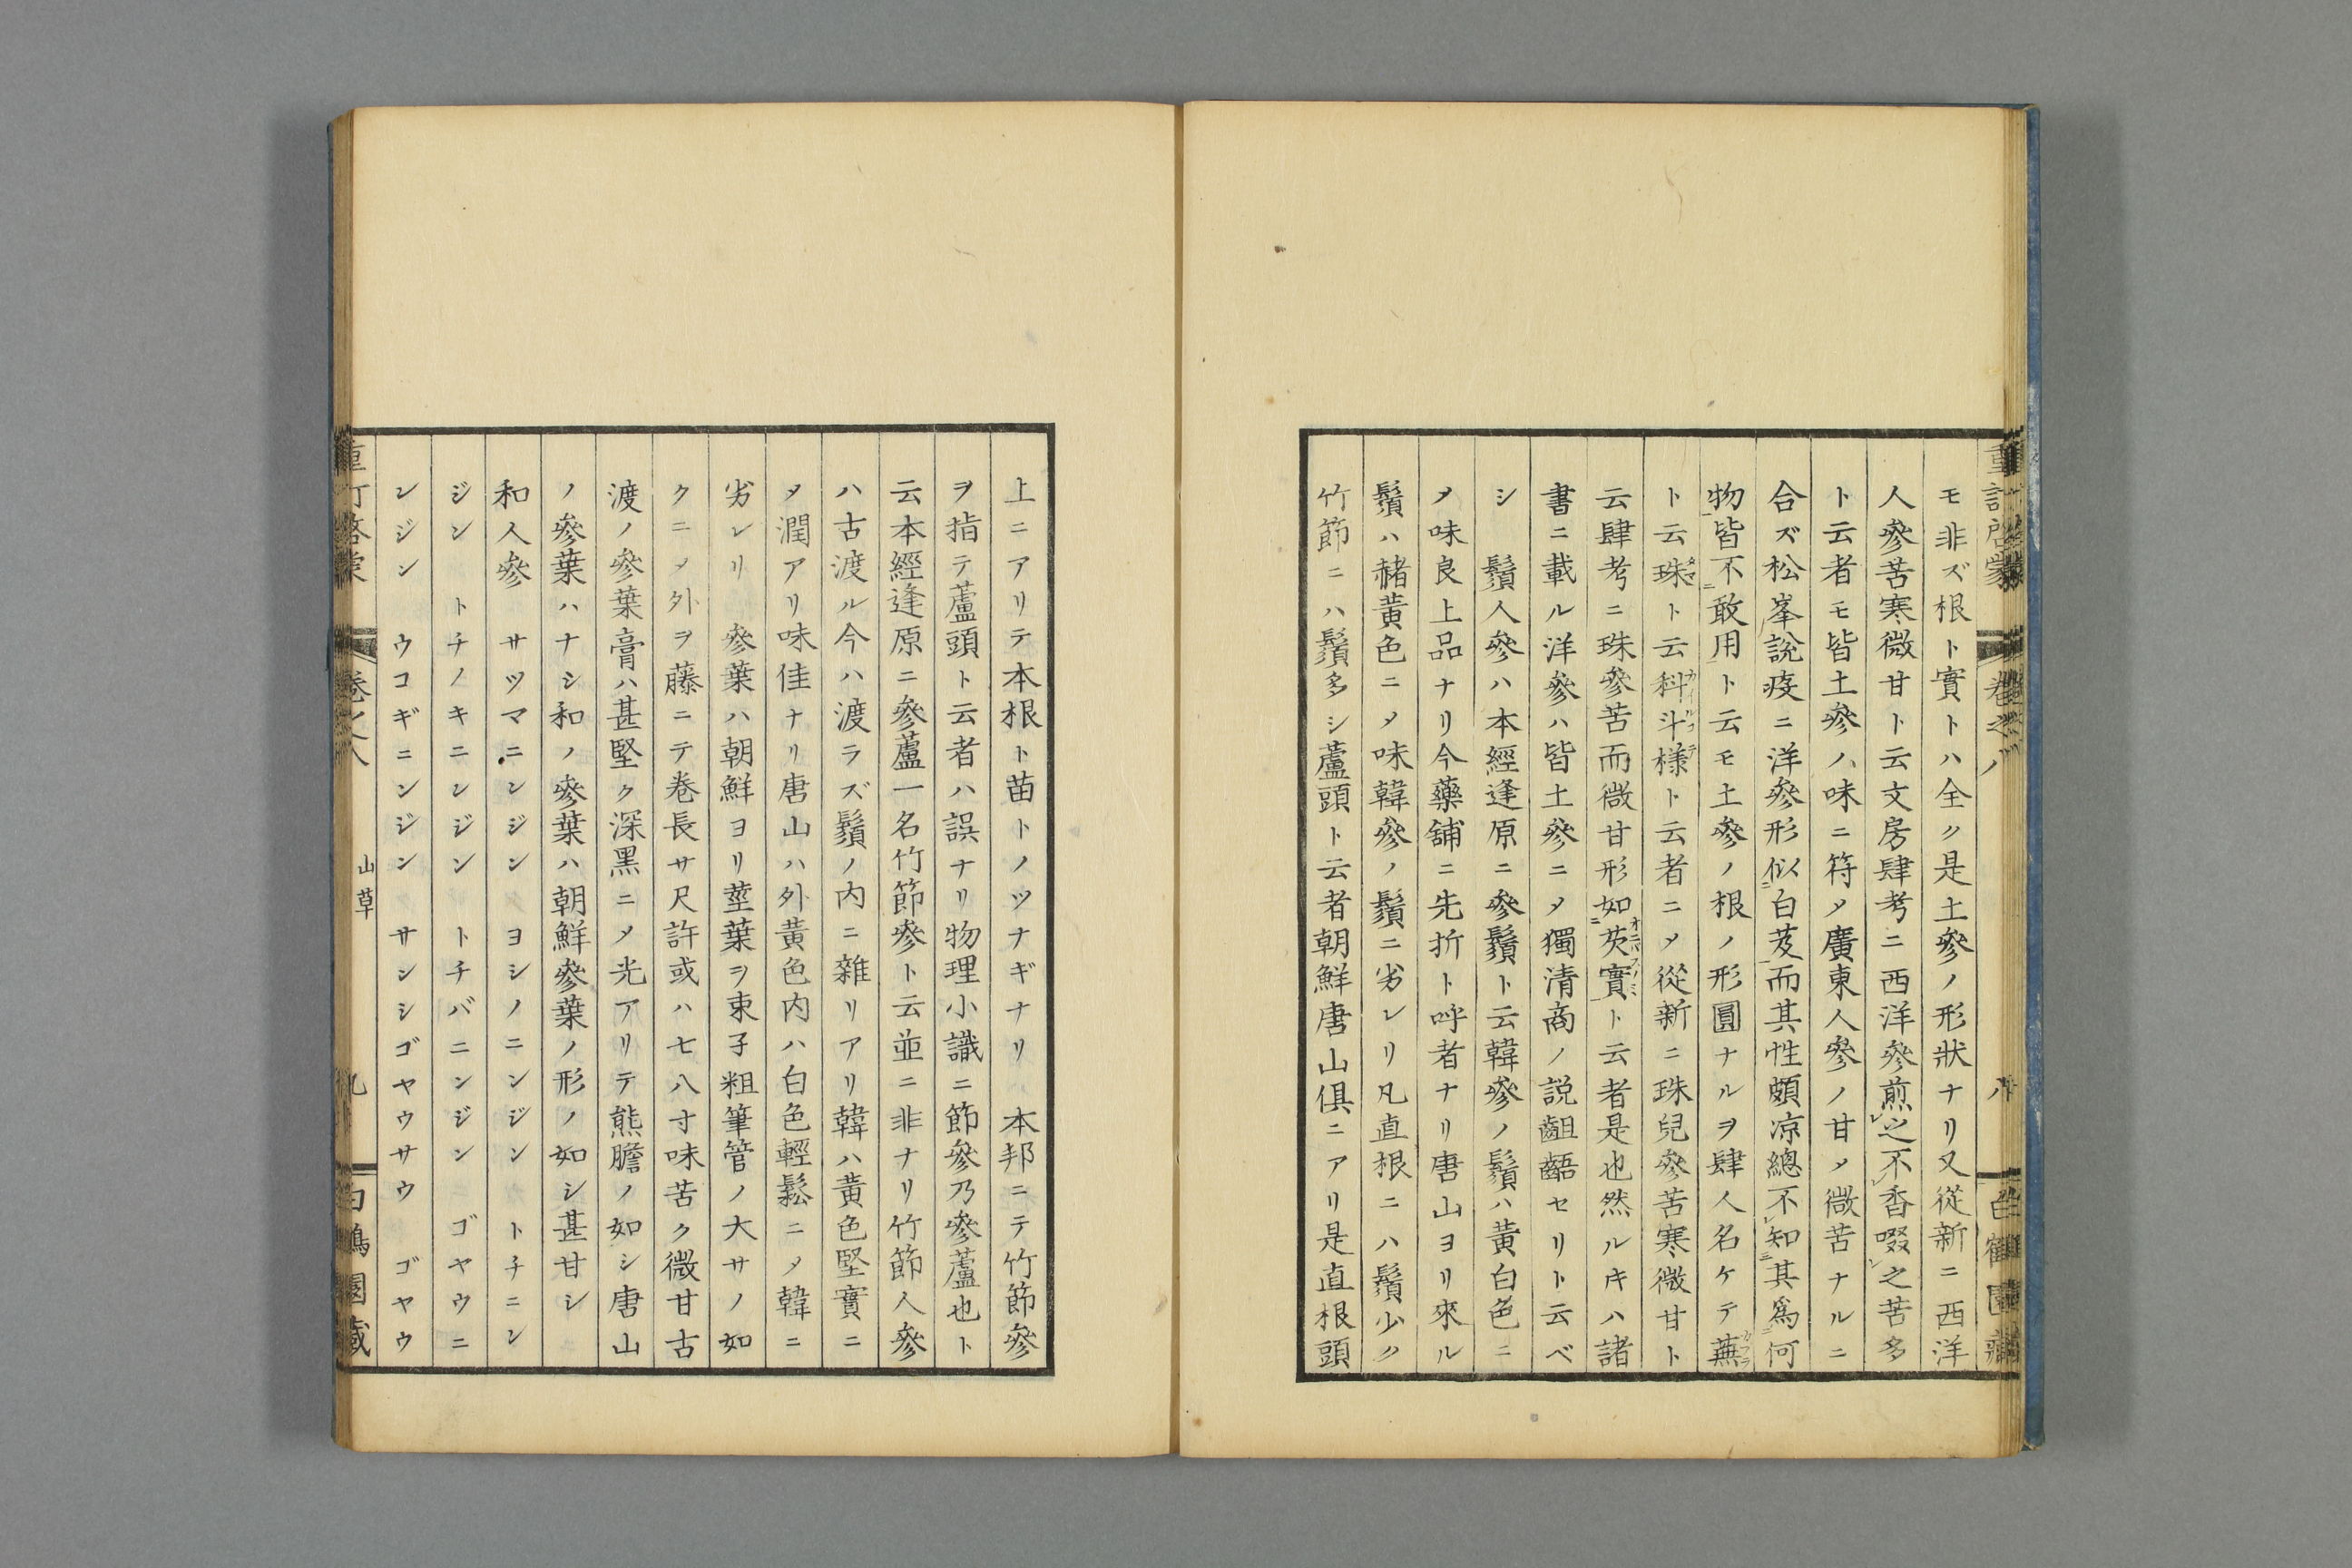 モ非ズ根ト實トハ全ク是土參ノ形狀ナリ又從新ニ西洋
人參苦寒微甘ト云文房肆考ニ西洋參煎之不香啜之苦多
ト云者モ皆土參ノハ味ニ符メ廣東人參ノ甘メ微苦ナルニ
合ズ松峯說疫ニ洋參形似白芨而其性頗凉總不知其爲何
物皆不敢用ト云モ土參ノ根ノ形圓ナルヲ肆人名ケテ蕪
ト云珠ト云科斗様ト云者ニメ從新ニ珠兒參苦寒微甘ト
云肆考ニ珠參苦而微甘形如芡實ト云者是也然ルキハ諸
書ニ載ル洋參ハ皆土參ニメ獨清商ノ説齟齬セリト云ベ
シ 鬚人參ハ本經逢原ニ參鬚ト云韓參ノ鬚ハ黄白色ニ
メ味良上品ナリ今藥舖ニ先折ト呼者ナリ唐山ヨリ來ル
鬚ハ赭黄色ニメ味韓參ノ鬚ニ劣レリ凡直根ニハ鬚少ク
竹節ニハ鬚多シ蘆頭ト云者朝鮮唐山俱ニアリ是直根頭
重訂啓蒙 卷之八 八
上ニアリテ本根ト苗トノツナギナリ 本邦ニテ竹節參
ヲ指テ蘆頭ト云者ハ誤ナリ物理小識ニ節參乃參蘆也ト
云本經逢原ニ參蘆一名竹節參ト云並ニ非ナリ竹節人參
ハ古渡ル今ハ渡ラズ鬚ノ内ニ雜リアリ韓ハ黄色堅實ニ
メ潤アリ味佳ナリ唐山ハ外黄色内ハ白色輕鬆ニメ韓ニ
劣レリ 參葉ハ朝鮮ヨリ莖葉ヲ束子粗筆管ノ大サノ如
クニメ外ヲ藤ニテ卷長サ尺許或ハ七八寸味苦ク微甘古
渡ノ參葉膏ハ甚堅ク深黒ニメ光アリテ熊膽ノ如シ唐山
ノ參葉ハナシ和ノ參葉ハ朝鮮參葉ノ形ノ如シ甚甘シ
和人參 サツマニンジン ヨシノニンジン トチニン
ジン トチノキニンジン トチバニンジン ゴヤウニ
ンジン ウコギニンジン サンシゴヤウサウ ゴヤウ
卷之八 山草 九